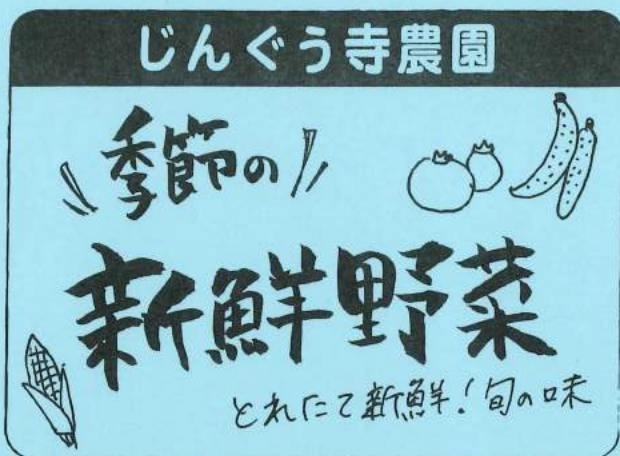 じんぐう寺農園
季節の
新鮮野菜
とれたて新鮮!旬の味